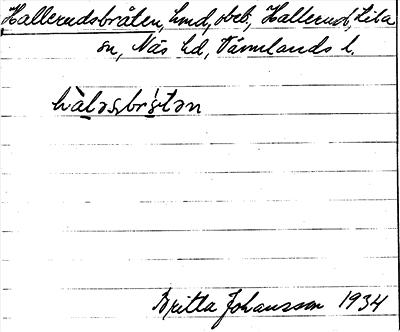 Hallerudsbråten, hmd, obeb., Hallerud, Lilla
sn, Näs hd, Värmlands l.
hàləsbrs̀tən
Britta Johansson 1934